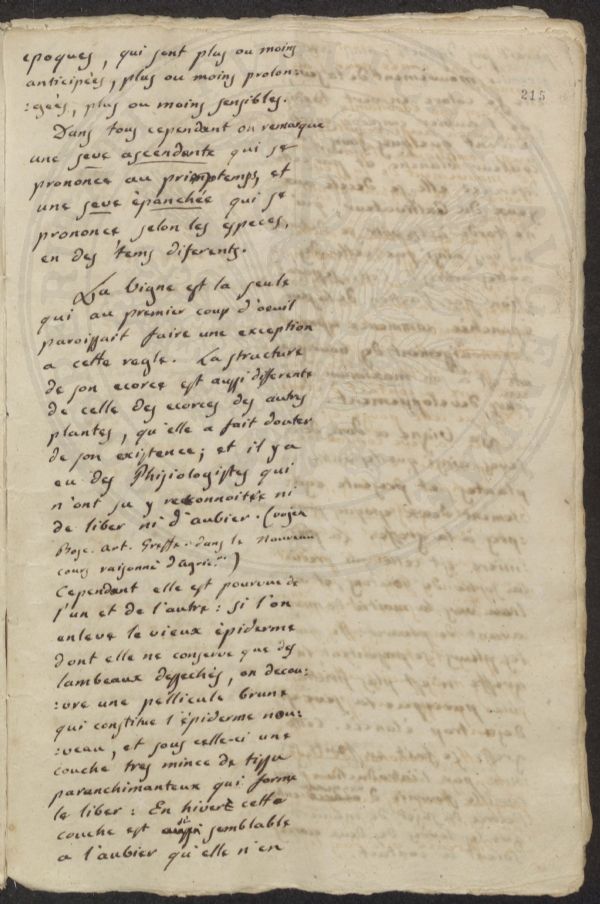 epoques, qui sont plus ou moins
anticipées, plus ou moins prolon:
:gées, plus ou moins sensibles.
215
Dans tous cependant on remarque
une seve ascendante qui se
prononce au printemps, et
une seve épanchée qui se
prononce selon les especes,
en des tems diferents.
La Vigne est la seule
qui au premier coup d'oeuil
paroissait faire une exception
a cette regle. La structure
de son ecorce est aussi differente
de celle des ecorces des autres
plantes, qu'elle a fait douter
de son existence; et il y a
eu des Phisiologistes qui
n'ont su y reconnoitre ni
de liber ni d'aubier. (voyez
Bosc. art. Greffe. dans le Nouveau
cours raisonné d'agric.)
Cependant elle est pourvue de
l'un et de l'autre: si l'on
enleve le vieux épiderme
dont elle ne conserve que des
lambeaux dessechés, on decou:
:vre une pellicule brune
qui constitue l'épiderme nou:
:veau, et sous celle-ci une
couche tres mince de tissu
parenchimanteux qui forme
le liber: En hiver cette
couche est si semblable
a l'aubier qu'elle n'en